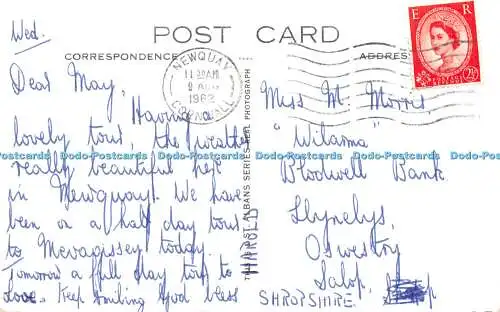 POST CARD
CORRESPONDENCE
ADDRESS
NEWQUAY
11 30AM
9 AUG
1962
CORNWALL
E R
2½D
Wed.
Dear May,
Having a
lovely tour, the weather
really beautiful here
in Newquay. We have
been on a half day tour
to Mevagissey today.
Tomorrow a full day tour to
Love. Keep smiling God bless
HAROLD
ST. ALBANS SERIES REAL PHOTOGRAPH
Miss M. Morris,
"Wilarna"
Blodwell Bank
Llynclys,
Oswestry
Salop.
SHROPSHIRE
Dodo-Postcards Dodo-Postcards Dodo-Postcards Dodo-Postcards Dodo-Postcards Dodo-Postcards